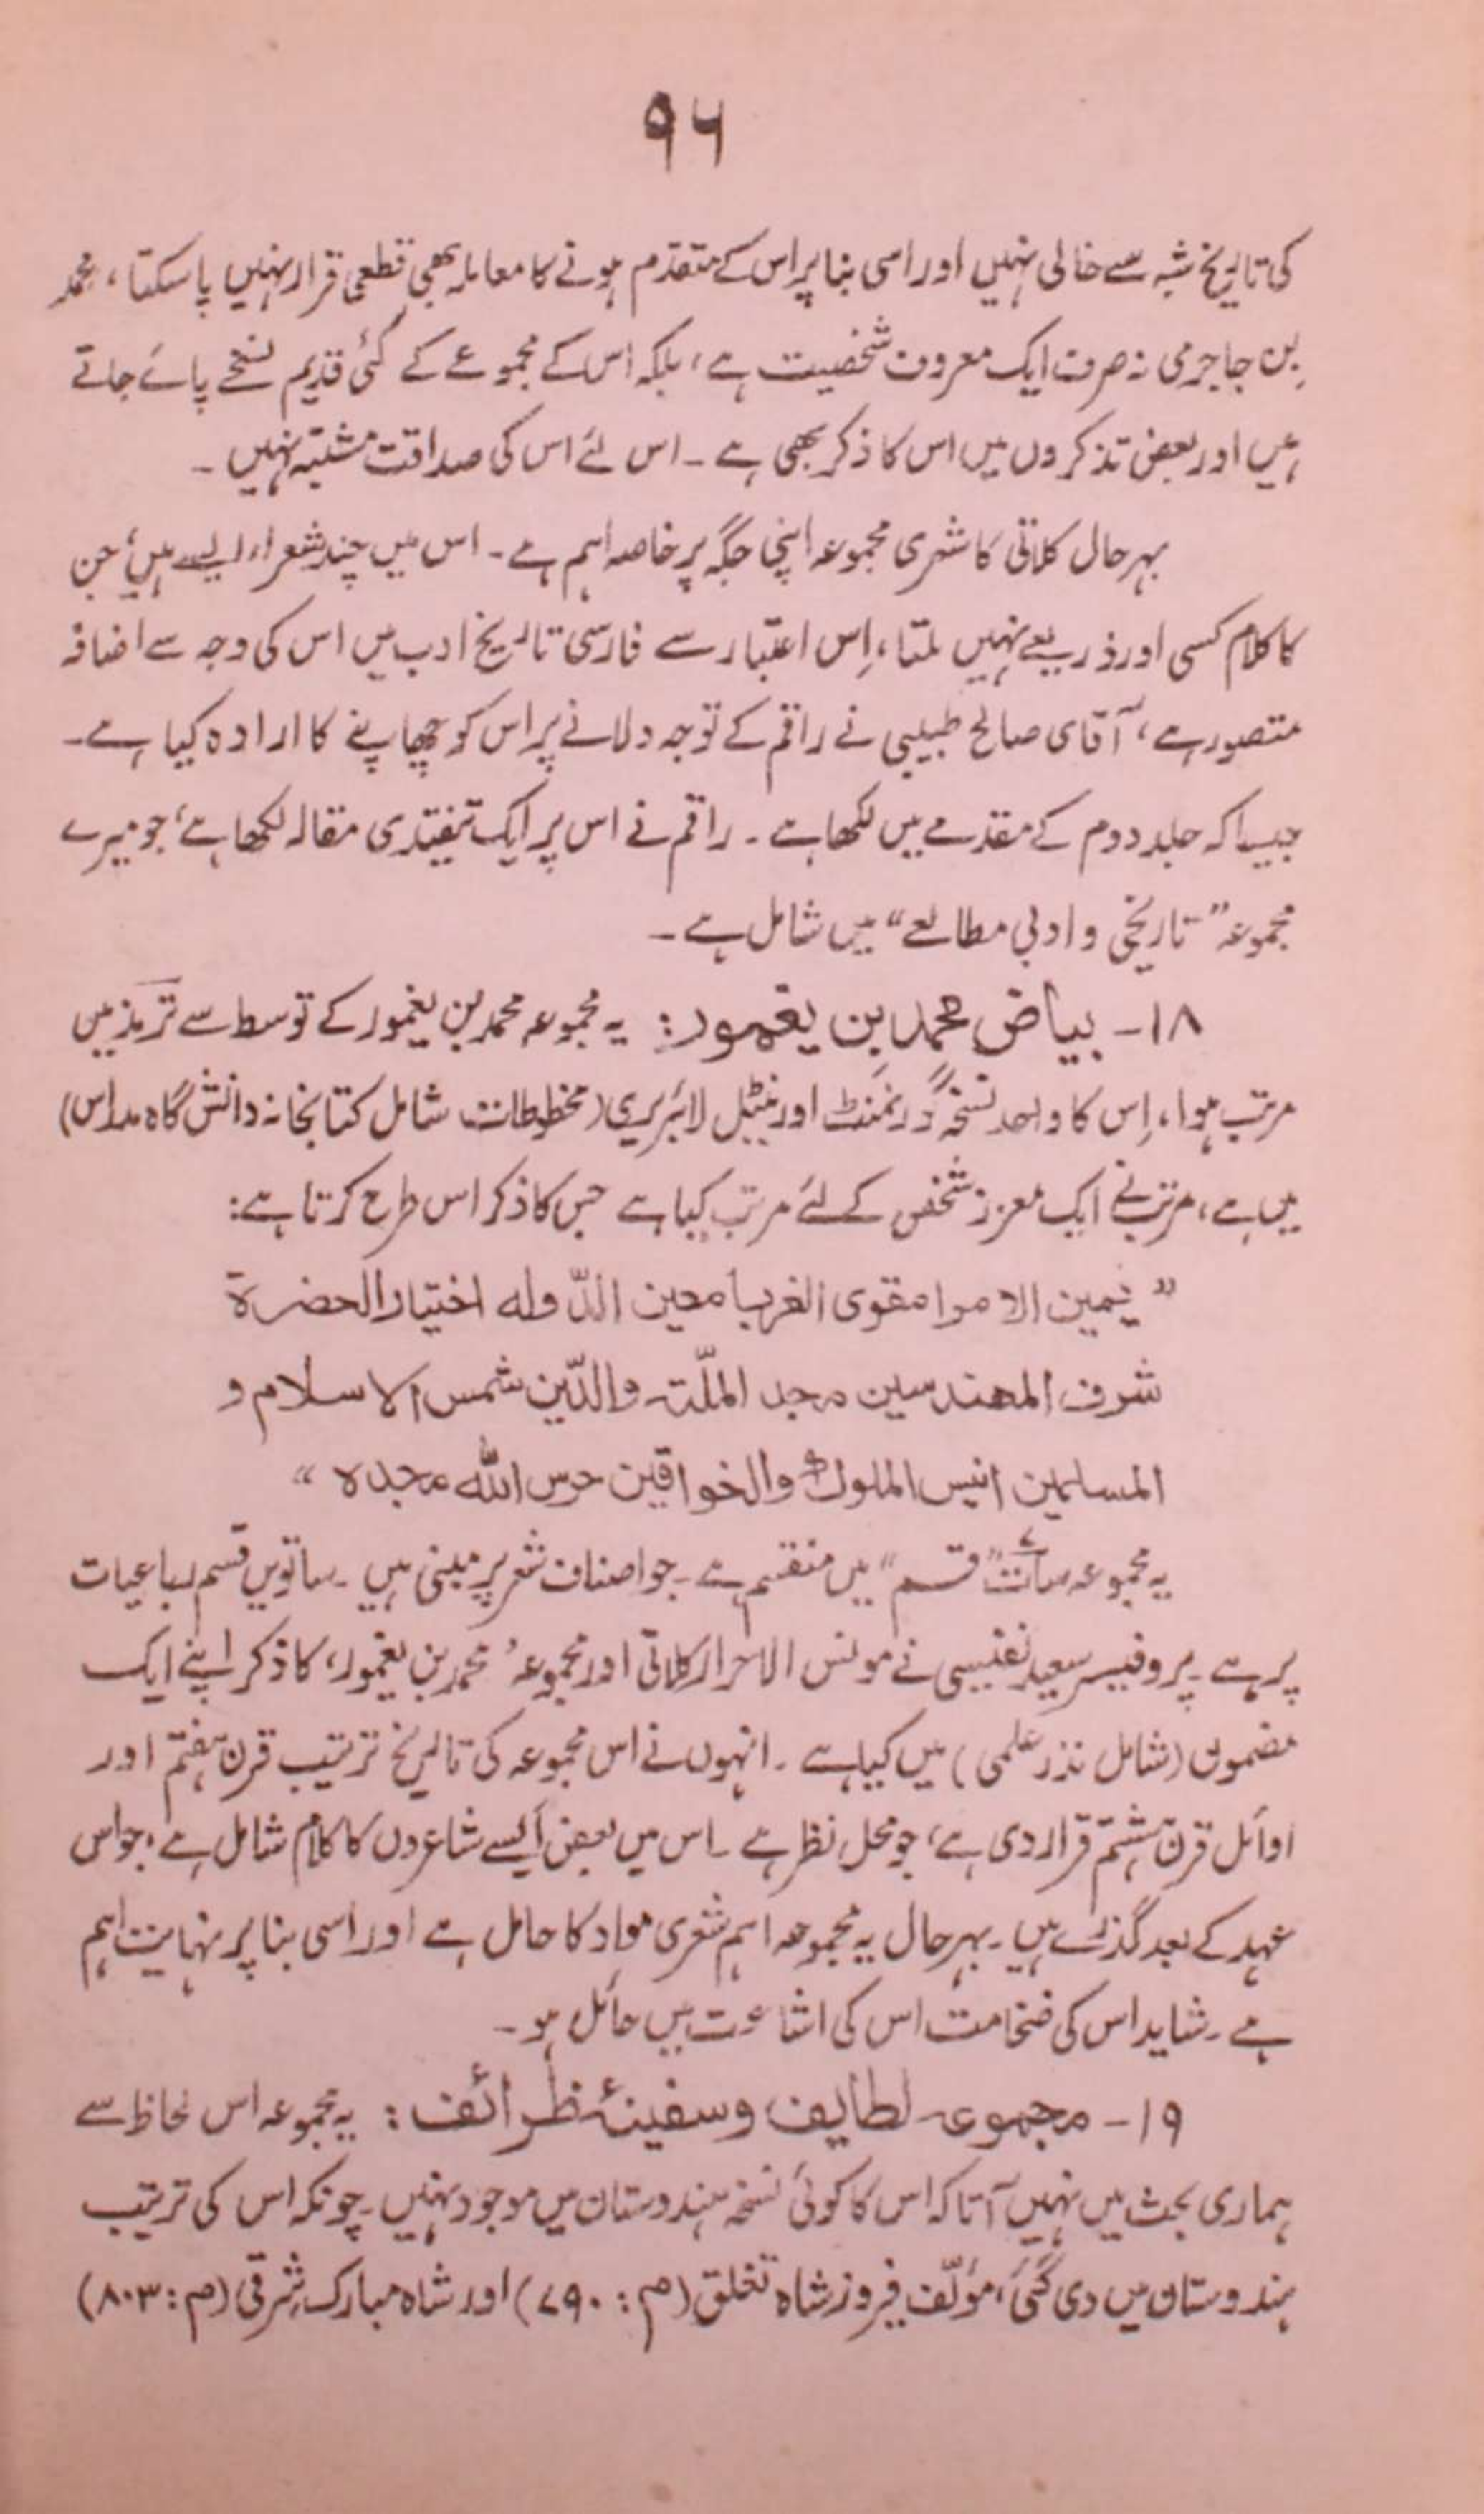 ۹۶
کی تاریخ شبہ سے خالی نہیں اور اسی بنا پر اس کے متقدم ہونے کا معاملہ بھی قطعی قرار نہیں پا سکتا، محمد
بِن جاجرمی نہ صرف ایک معروف شخصیت ہے، بلکہ اس کے مجموعے کے کئی قدیم نسخے پائے جاتے
ہیں اور بعض تذکروں میں اس کا ذکر بھی ہے ۔ اس لئے اس کی صداقت مشتبہ نہیں ۔
بہر حال کلاتی کا شعری مجموعہ اپنی جگہ پر خاصہ اہم ہے ۔ اس میں چند شعراء ایسے ہیں، جن
کا کلام کسی اور ذریعے نہیں ملتا، اِس اعتبار سے فارسی تاریخ ادب میں اس کی وجہ سے اضافہ
متصور ہے، آقای صالح طبیبی نے راقم کے توجہ دلانے پر اس کو چھاپنے کا ارادہ کیا ہے ۔
جیسا کہ جلد دوم کے مقدمے میں لکھا ہے ۔ راقم نے اس پر ایک تنقیدی مقالہ لکھا ہے، جو میرے
مجموعہ ”تاریخی و ادبی مطالعے“ میں شامل ہے ۔
۱۸ ۔ بیاض محمد بِن یغمور: یہ مجموعہ محمد بن یغمور کے توسط سے ترمذ میں
مرتب ہوا، اِس کا واحد نسخہ گورنمنٹ اورینٹیل لائبریری (مخطوطات شامل کتابخانہ دانش گاہ مدراس)
میں ہے، مرتب نے ایک معزز شخص کے لئے مرتب کیا ہے جس کا ذکر اس طرح کرتا ہے:
” یمین الامرا مقوی الغربا معین الدّولہ اختیار الحضرة
شرف المھندسین مجد الملّۃ والدّین شمس الاسلام و
المسلمین انیس الملوک والخواقین حرس اللہ مجدہ “
یہ مجموعہ سات ”قسم“ میں منقسم ہے ۔ جو اصناف شعر پر مبنی ہیں ۔ ساتویں قسم رباعیات
پر ہے ۔ پروفیسر سعید نفیسی نے مونس الاحرار کلاتی اور مجموعۂ محمد بن یغمور، کا ذکر اپنے ایک
مضمون (شامل نذر علمی) میں کیا ہے ۔ انہوں نے اس مجموعہ کی تاریخ ترتیب قرن ہفتم اور
اوائل قرن ہشتم قرار دی ہے، جو محل نظر ہے ۔ اس میں بعض ایسے شاعروں کا کلام شامل ہے، جو اس
عہد کے بعد گذرے ہیں ۔ بہر حال یہ مجموعہ اہم شعری مواد کا حامل ہے اور اسی بنا پر نہایت اہم
ہے ۔ شاید اس کی ضخامت اس کی اشاعت میں حائل ہو ۔
۱۹ ۔ مجموعہ لطایف و سفینۂ ظرائف: یہ مجموعہ اس لحاظ سے
ہماری بحث میں نہیں آتا کہ اس کا کوئی نسخہ ہندوستان میں موجود نہیں ۔ چونکہ اس کی ترتیب
ہندوستان میں دی گئی، مؤلّف فیروز شاہ تغلق (م: ۷۹۰) اور شاہ مبارک شرقی (م: ۸۰۳)